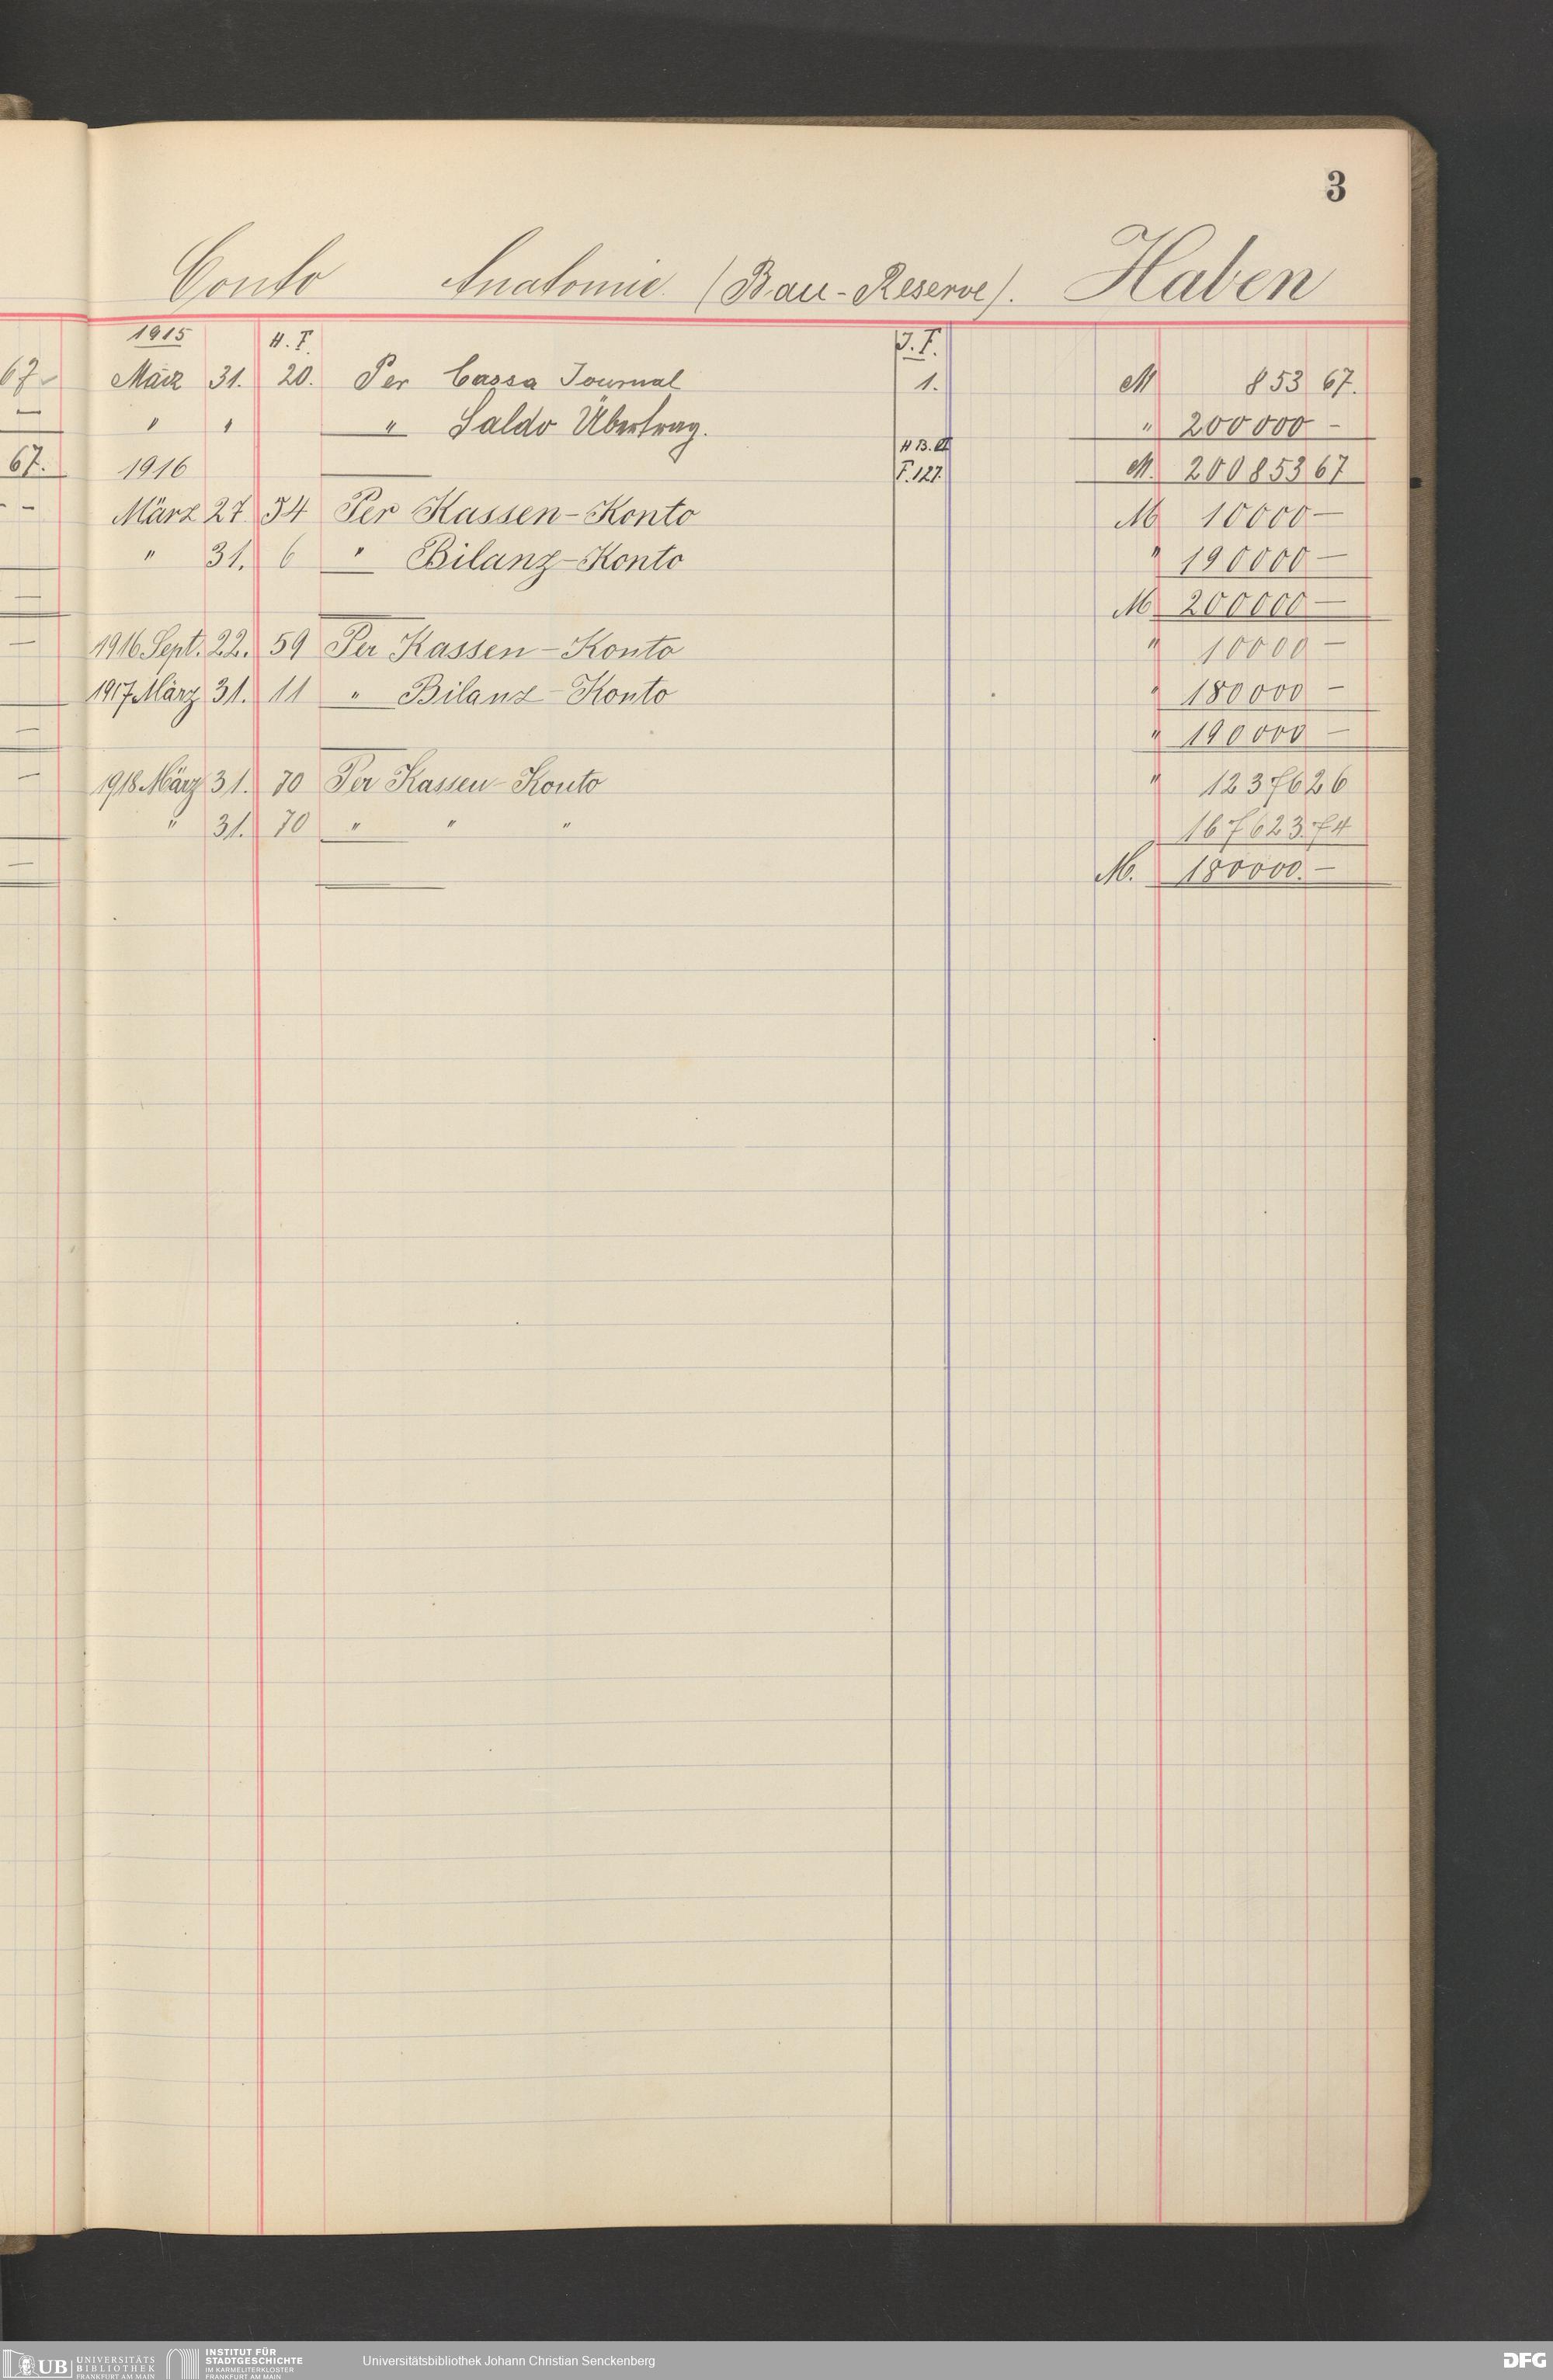 3
Conto Anatomie (Bau-Reserve). Haben
1915 H. F. J. F.
67 März 31. 20. Per Cassa Journal 1. M 853 67.
— " " " Saldo Übertrag. " 200000 -
H B. II
67. 1916 F. 127. M. 200853 67
- - März 27 34 Per Kassen-Konto M 10000 —
" 31. 6 " Bilanz-Konto " 190000 —
— M 200000 —
— 1916 Sept. 22. 59 Per Kassen-Konto " 10000 —
1917 März 31. 11 " Bilanz-Konto " 180000 -
— " 190000 —
— 1918 März 31. 70 Per Kassen-Konto " 12376 26
" 31. 70 " " " 167623.74
— M. 180000.—
UB UNIVERSITÄTS
BIBLIOTHEK
FRANKFURT AM MAIN
INSTITUT FÜR
STADTGESCHICHTE
IM KARMELITERKLOSTER
FRANKFURT AM MAIN
Universitätsbibliothek Johann Christian Senckenberg
DFG